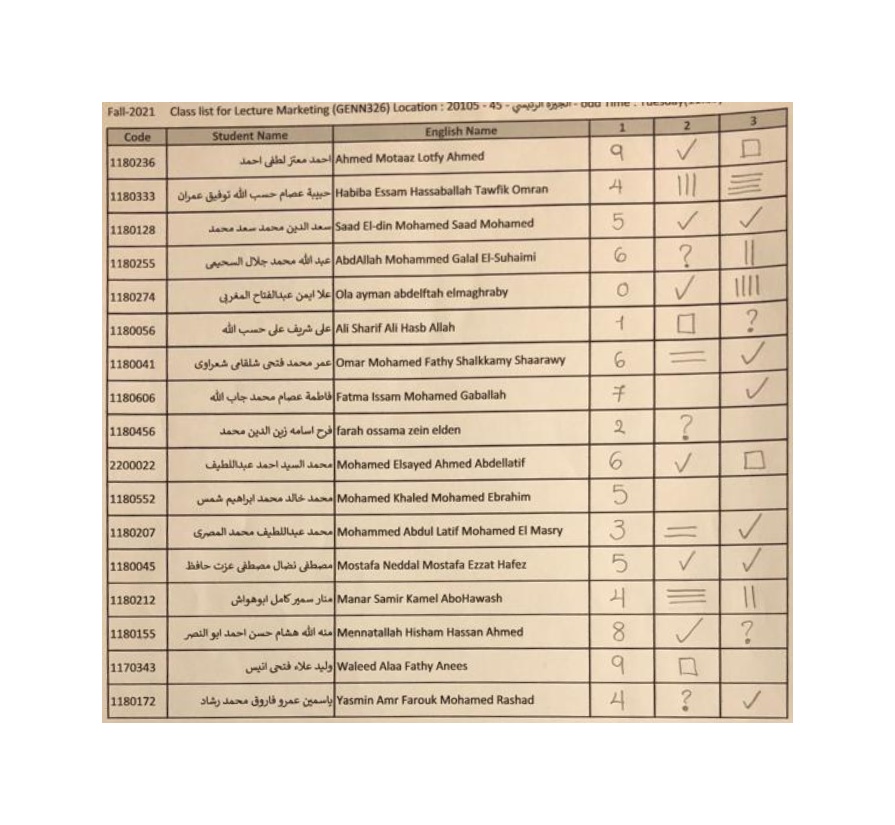 Fall-2021 Class list for Lecture Marketing (GENN326) Location : 20105 - 45 - الجيزة الرئيسي - Odd Time : Tuesday
Code Student Name English Name 1 2 3
1180236 احمد معتز لطفى احمد Ahmed Motaaz Lotfy Ahmed 9 ✓ □
1180333 حبيبة عصام حسب الله توفيق عمران Habiba Essam Hassaballah Tawfik Omran 4 ||| ☰
1180128 سعد الدين محمد سعد محمد Saad El-din Mohamed Saad Mohamed 5 ✓ ✓
1180255 عبد الله محمد جلال السحيمى AbdAllah Mohammed Galal El-Suhaimi 6 ? ||
1180274 علا ايمن عبدالفتاح المغربى Ola ayman abdelftah elmaghraby 0 ✓ ||||
1180056 على شريف على حسب الله Ali Sharif Ali Hasb Allah 1 □ ?
1180041 عمر محمد فتحى شلقامى شعراوى Omar Mohamed Fathy Shalkkamy Shaarawy 6 = ✓
1180606 فاطمة عصام محمد جاب الله Fatma Issam Mohamed Gaballah 7 ✓
1180456 فرح اسامه زين الدين محمد farah ossama zein elden 2 ?
2200022 محمد السيد احمد عبداللطيف Mohamed Elsayed Ahmed Abdellatif 6 ✓ □
1180552 محمد خالد محمد ابراهيم شمس Mohamed Khaled Mohamed Ebrahim 5
1180207 محمد عبداللطيف محمد المصرى Mohammed Abdul Latif Mohamed El Masry 3 = ✓
1180045 مصطفى نضال مصطفى عزت حافظ Mostafa Neddal Mostafa Ezzat Hafez 5 ✓ ✓
1180212 منار سمير كامل ابوهواش Manar Samir Kamel AboHawash 4 ☰ ||
1180155 منه الله هشام حسن احمد ابو النصر Mennatallah Hisham Hassan Ahmed 8 ✓ ?
1170343 وليد علاء فتحى انيس Waleed Alaa Fathy Anees 9 □
1180172 ياسمين عمرو فاروق محمد رشاد Yasmin Amr Farouk Mohamed Rashad 4 ? ✓